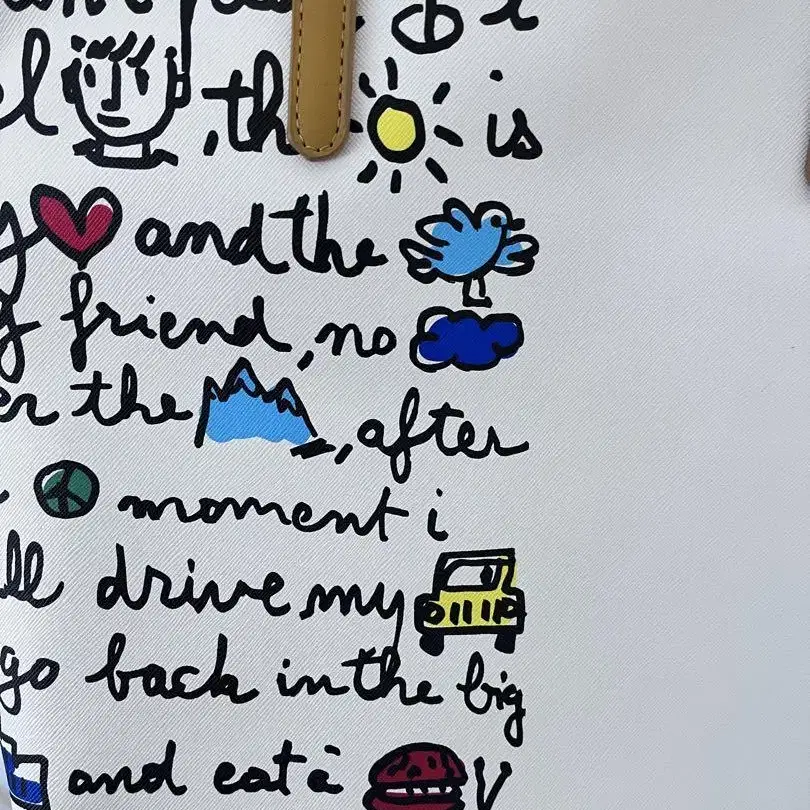 , th is
and the
friend, no
the , after
moment i
drive my
go back in the big
and eat à